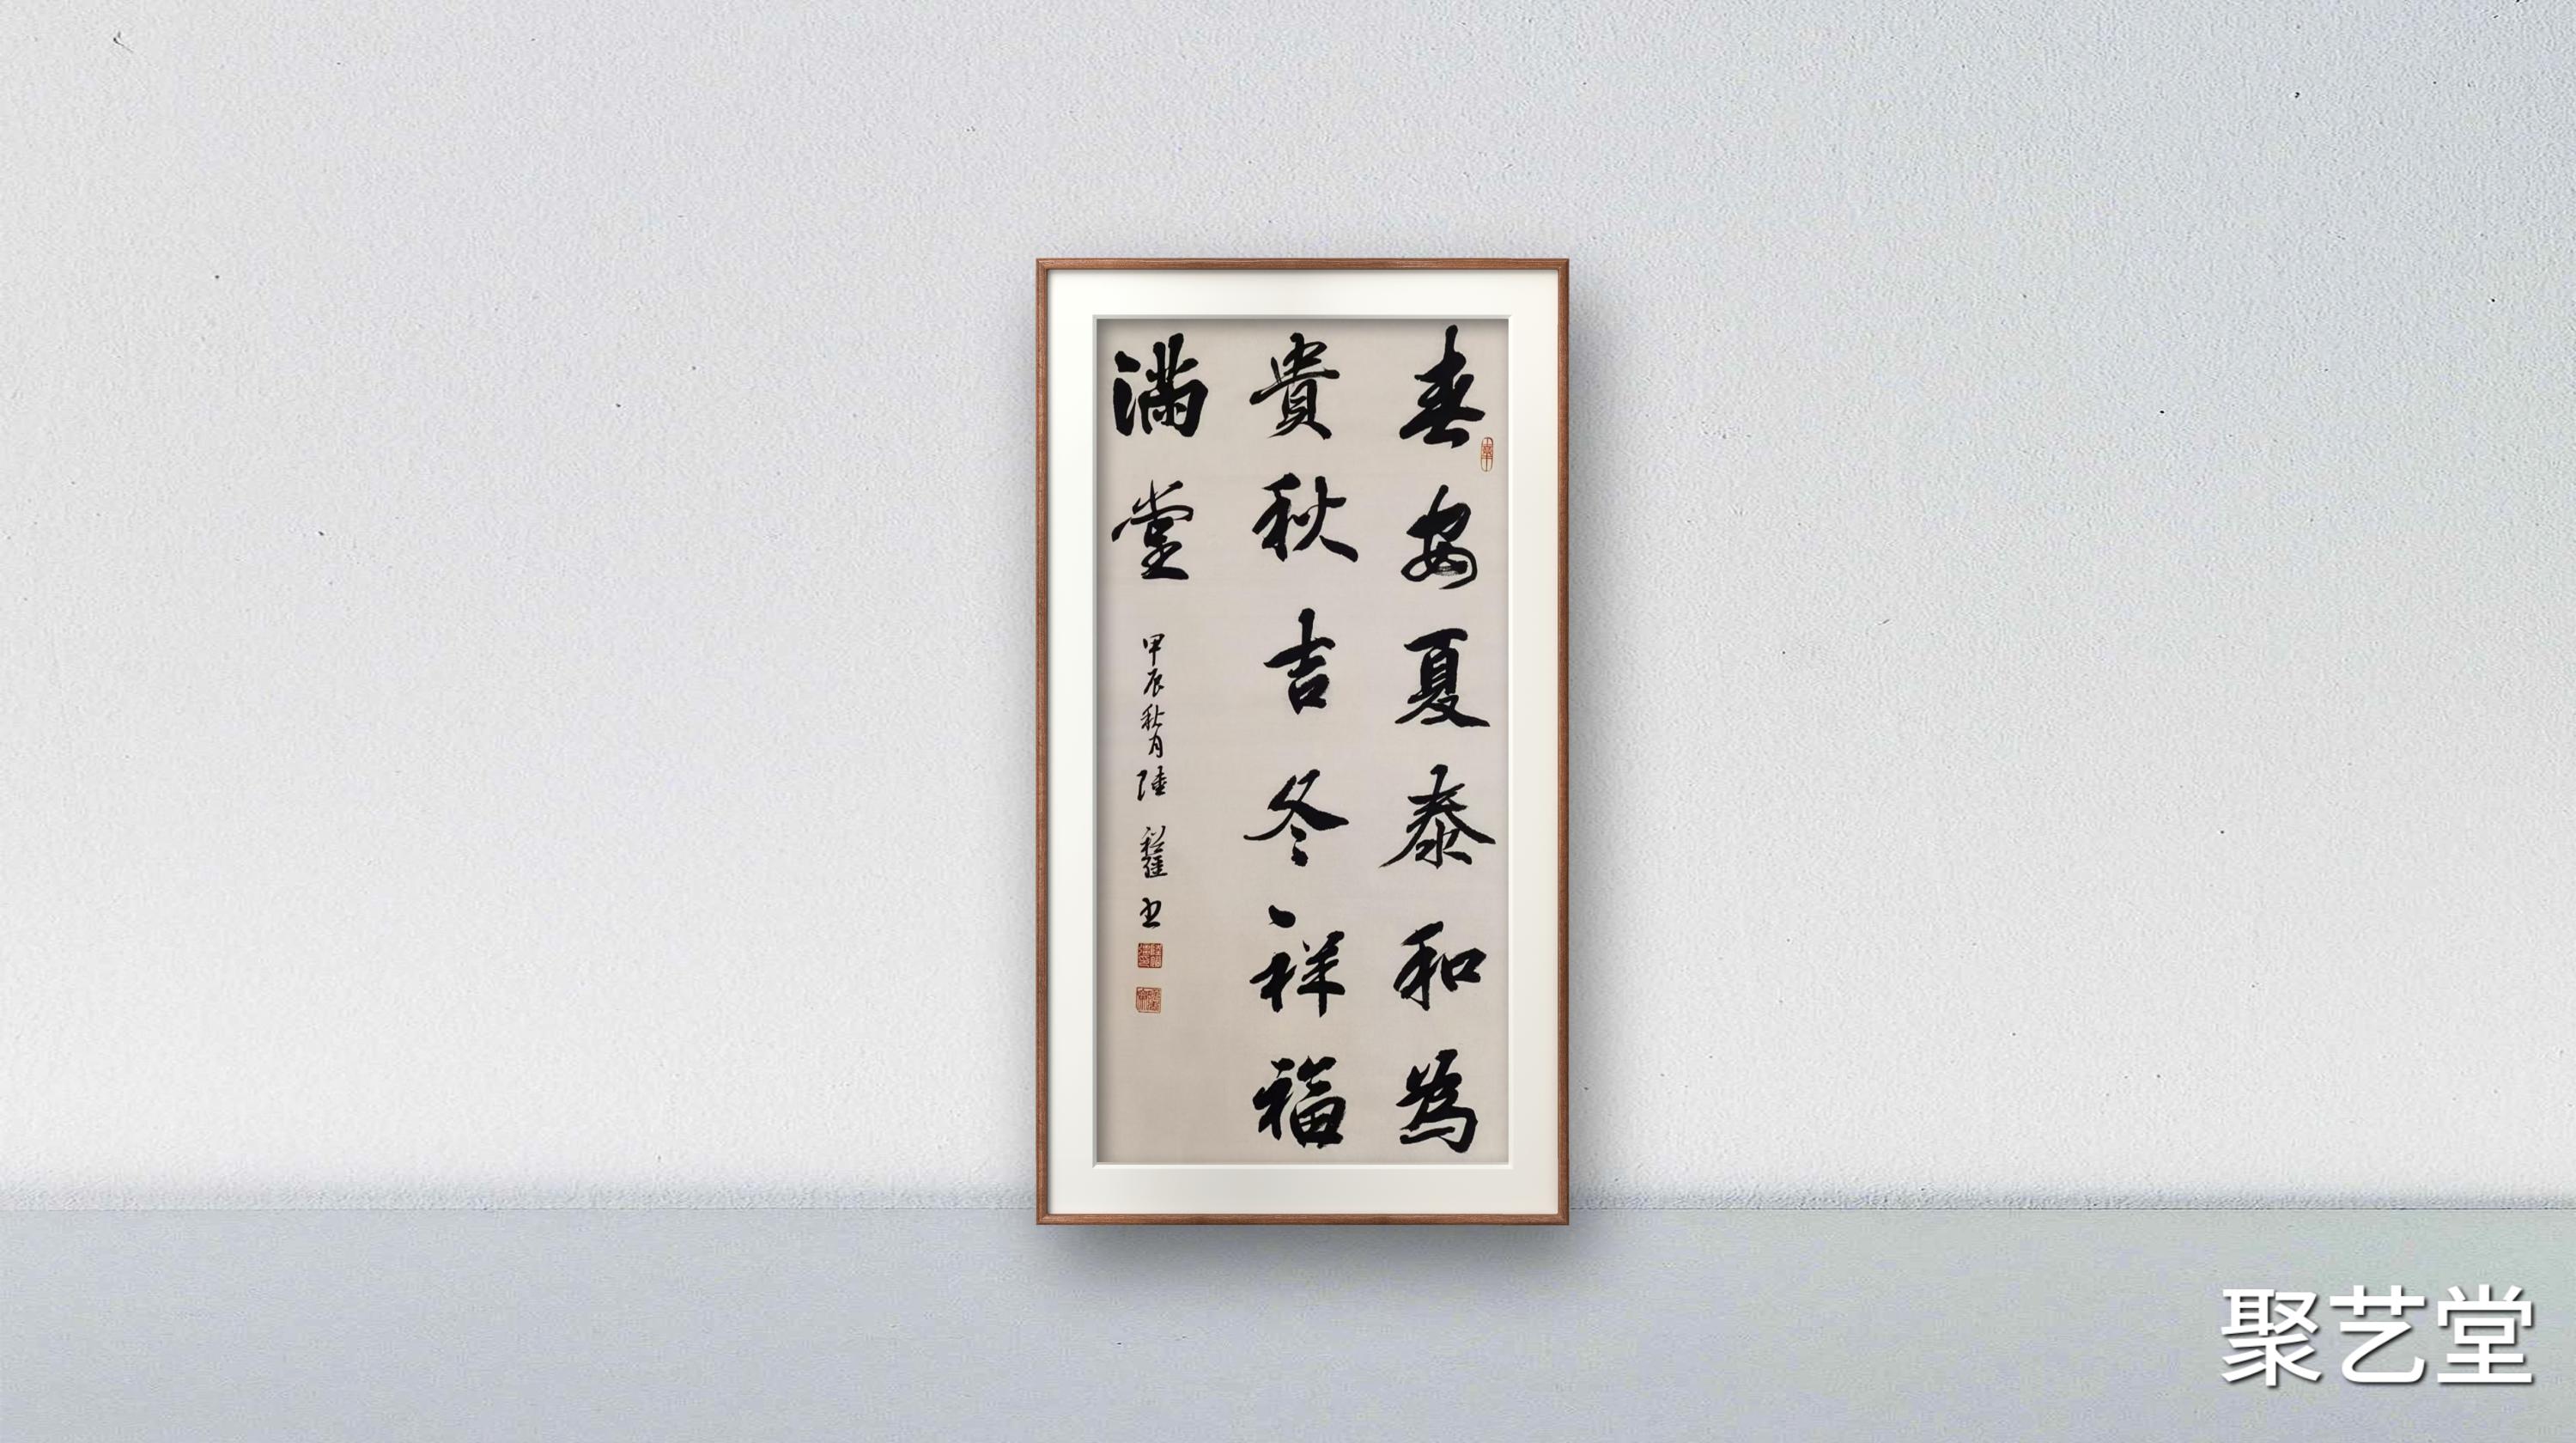 春安夏泰和為
貴秋吉冬祥福
滿堂
甲辰秋月陸
书
聚艺堂